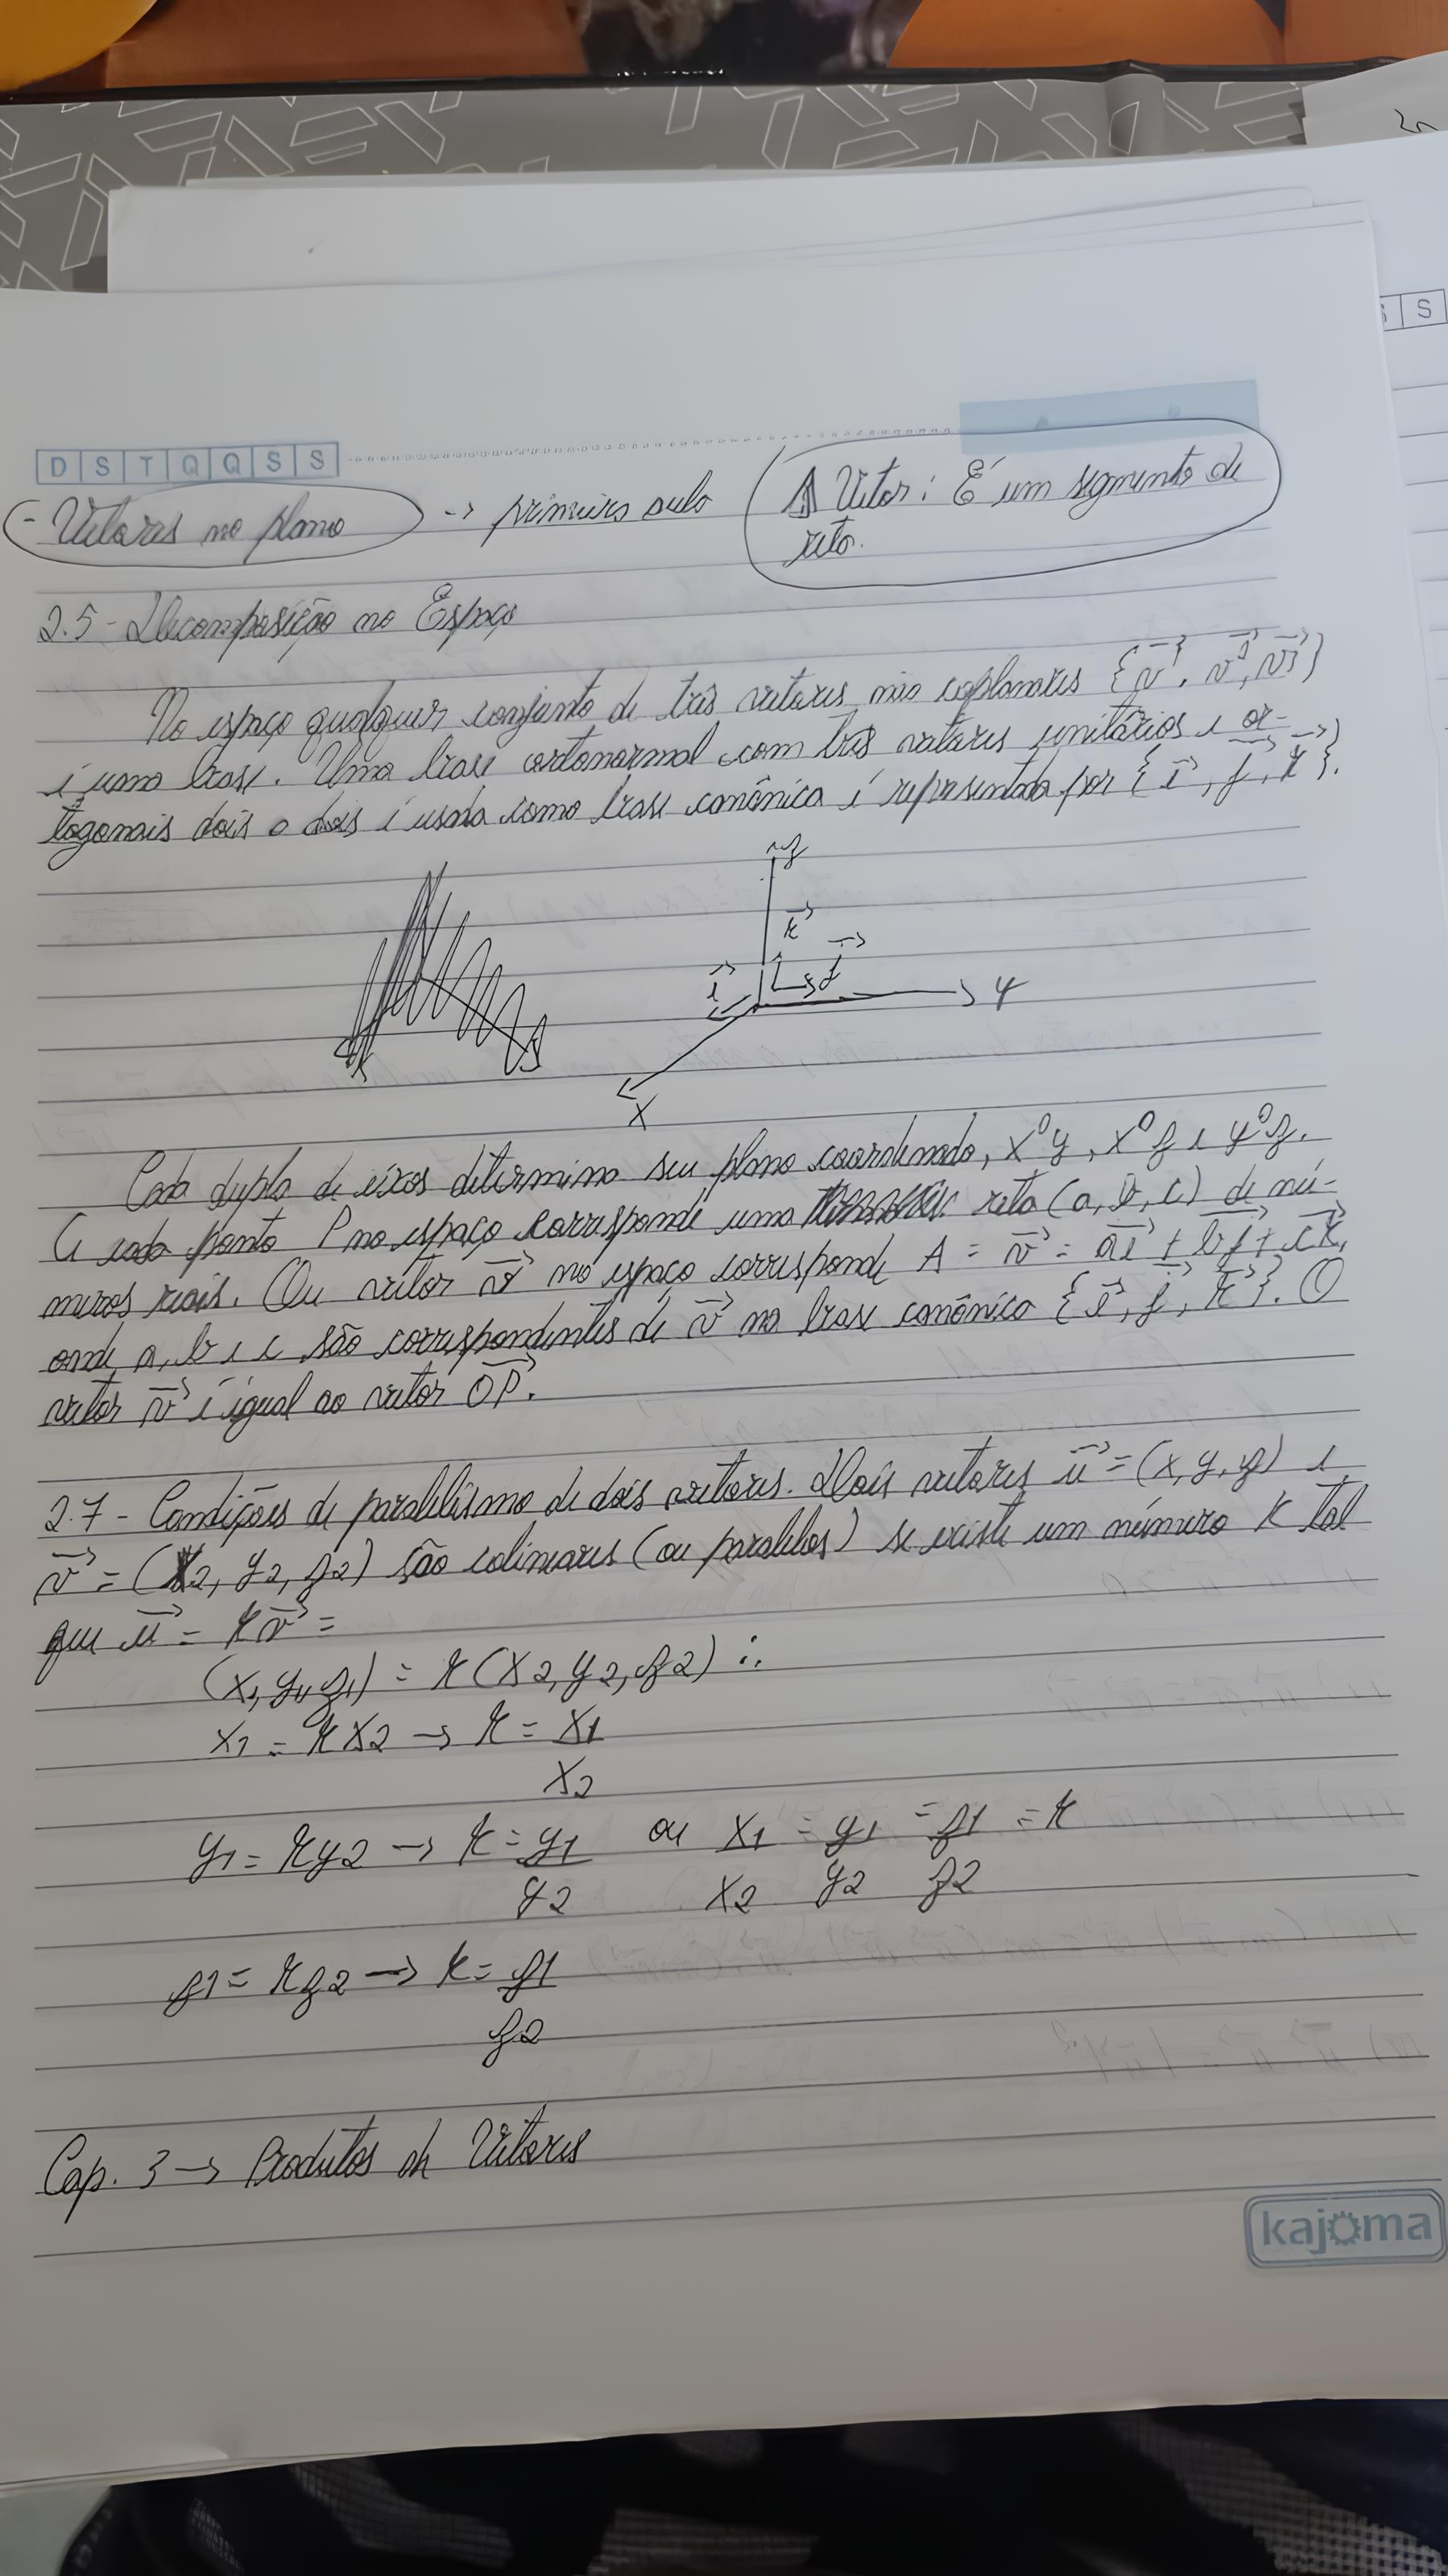 D S T Q Q S S
S
- Vetores no plano -> primeira aula
Vetor: É um segmento de
reta.
2.5 - Decomposição no Espaço
No espaço qualquer conjunto de três vetores não coplanares {v⃗, v⃗, v⃗}
é uma base. Uma base ortonormal com três vetores unitários e or-
togonais dois a dois é usada como base canônica é representada por {i⃗, j⃗, k⃗}.
z
k⃗
i⃗ j⃗
y
x
Cada dupla de eixos determina seu plano coordenado, x⁰y, x⁰z e y⁰z.
A cada ponto P no espaço corresponde uma reta (a, b, c) de nú-
meros reais. Ou vetor v⃗ no espaço corresponde A = v⃗ = ai⃗ + bj⃗ + ck⃗,
onde a, b e c são correspondentes de v⃗ na base canônica {i⃗, j⃗, k⃗}. O
vetor v⃗ é igual ao vetor OP⃗.
2.7 - Condições de paralelismo de dois vetores. Dois vetores u⃗ = (x, y, z) e
v⃗ = (x2, y2, z2) são colineares (ou paralelos) se existe um número K tal
que u⃗ = kv⃗ =
(x1, y1, z1) = k(x2, y2, z2) ∴
x1 = kx2 -> k = x1
x2
y1 = ky2 -> k = y1 ou x1 = y1 = z1 = k
y2 x2 y2 z2
z1 = kz2 -> k = z1
z2
Cap. 3 -> Produtos de Vetores
kajoma